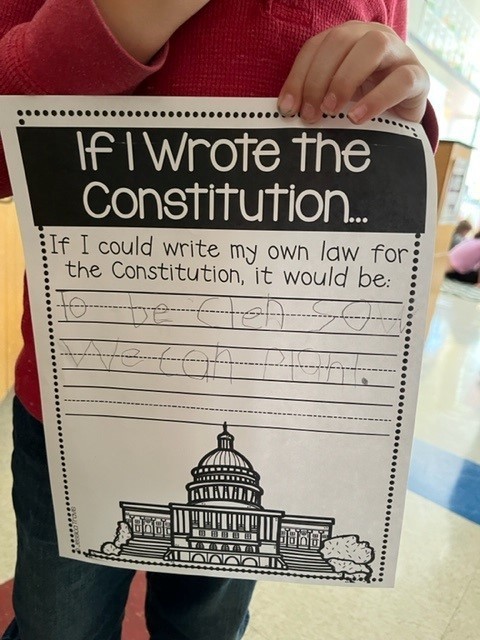 If I Wrote the
Constitution...
If I could write my own law for
the Constitution, it would be:
To be cleh sow
We cah Plant.